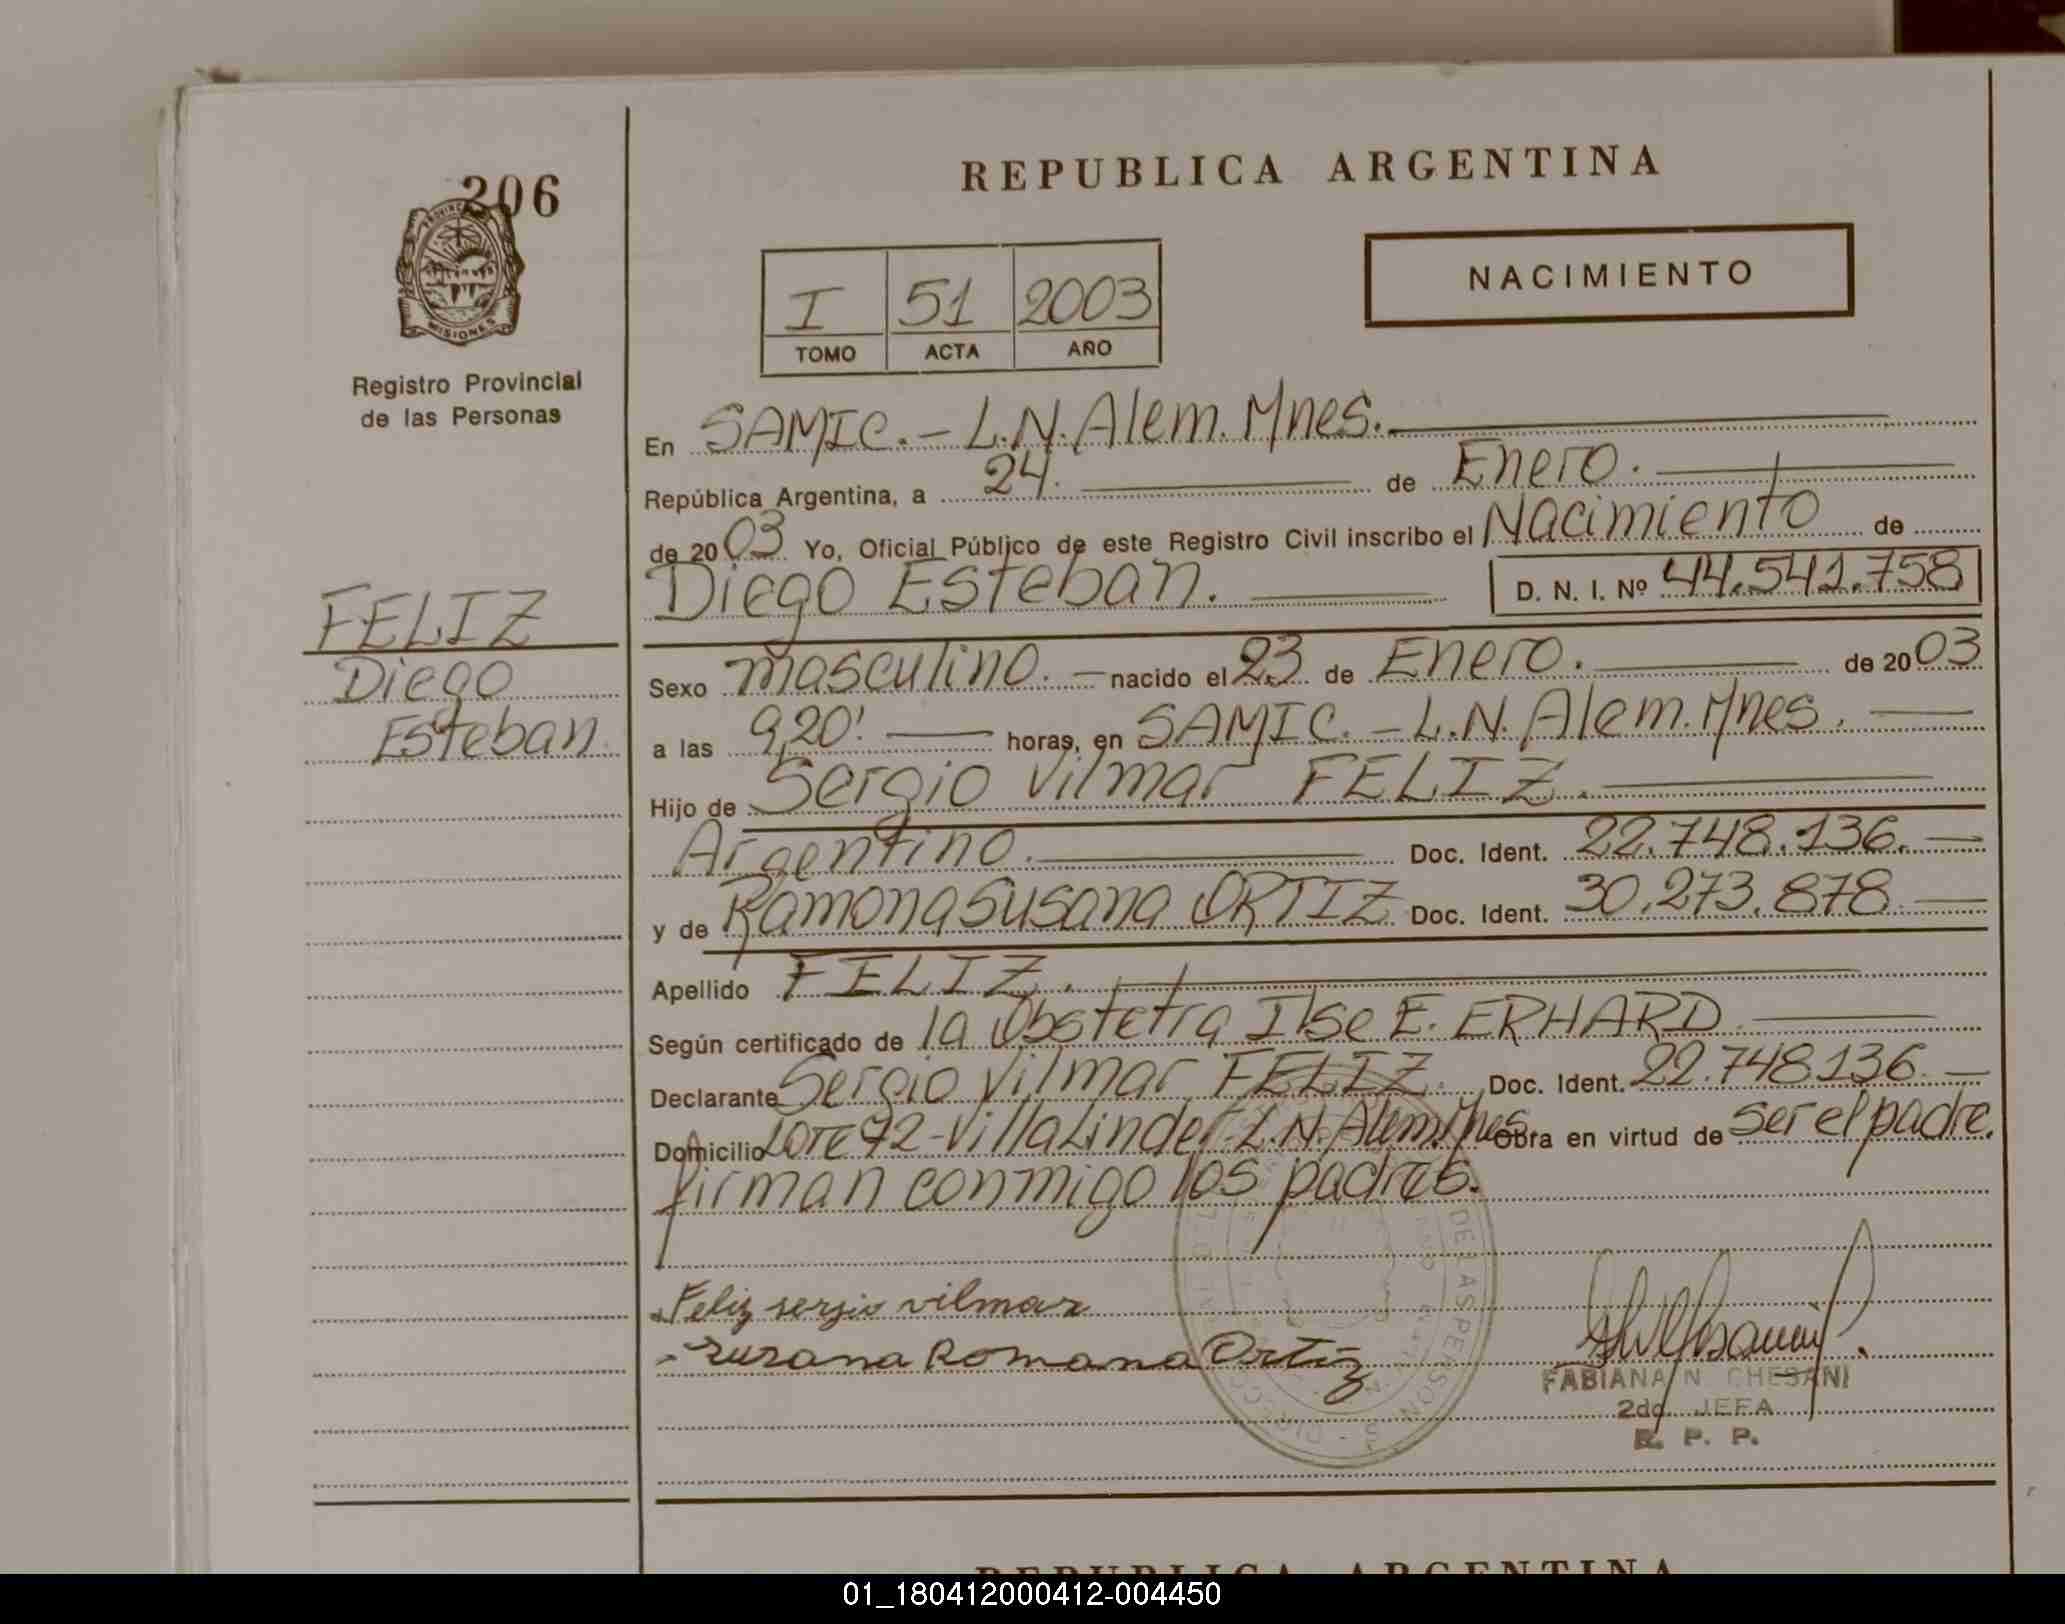 206
PROVINCIA
MISIONES
Registro Provincial
de las Personas
FELIZ
Diego
Esteban.
REPUBLICA ARGENTINA
I 51 2003
TOMO ACTA AÑO
NACIMIENTO
En SAMIC.- L.N. Alem. Mnes.
República Argentina, a 24. de Enero.
de 2003 Yo, Oficial Público de este Registro Civil inscribo el Nacimiento de
Diego Esteban. D. N. I. Nº 44.541.758
Sexo masculino. - nacido el 23 de Enero. de 2003
a las 9,20' horas, en SAMIC. - L.N. Alem. Mnes.
Hijo de Sergio Vilmar FELIZ.
Argentino. Doc. Ident. 22.748.136.
y de Ramona Susana ORTIZ Doc. Ident. 30.273.878
Apellido FELIZ.
Según certificado de la Obstetra Ilse E. ERHARD
Declarante Sergio Vilmar FELIZ. Doc. Ident. 22.748.136
Domicilio Lote 72 - Villa Linder - L.N. Alem. Mnes Obra en virtud de ser el padre.
firman conmigo los padres.
Feliz sergio vilmar
Susana Romana Ortiz
DE LAS PERSONAS
FABIANA N. CHESANI
2do. JEFA
R. P. P.
REPUBLICA ARGENTINA
01_180412000412-004450